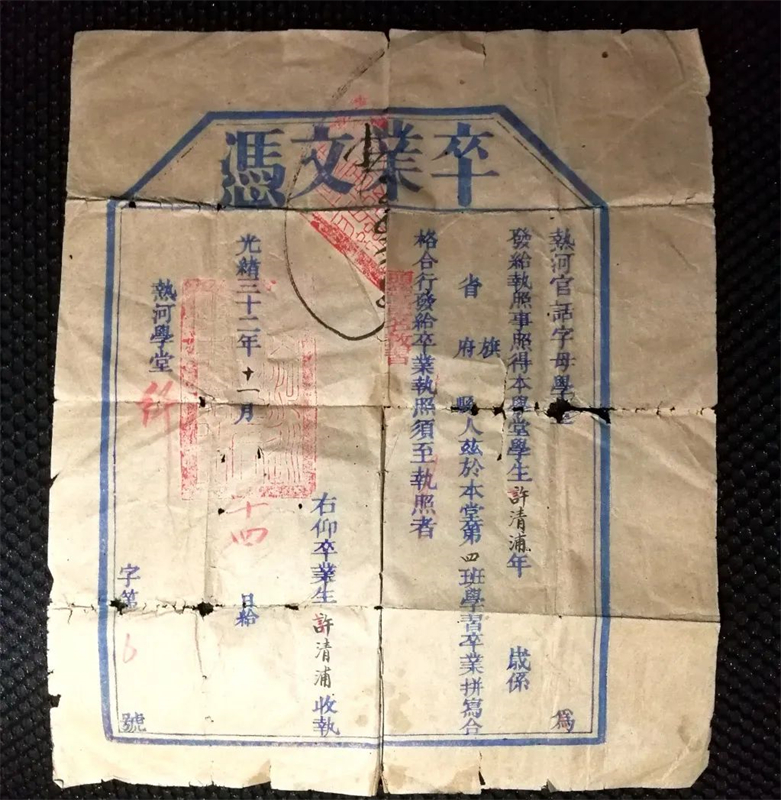 卒業文憑
熱河官話字母學堂 為
發給執照事照得本學堂學生許清浦年 歲係
省 府 旗 縣人茲於本堂第四班學習卒業拼寫合
格合行發給卒業執照須至執照者
右仰卒業生許清浦收執
光緒三十二年十一月 十四 日給
熱河學堂
字第 號